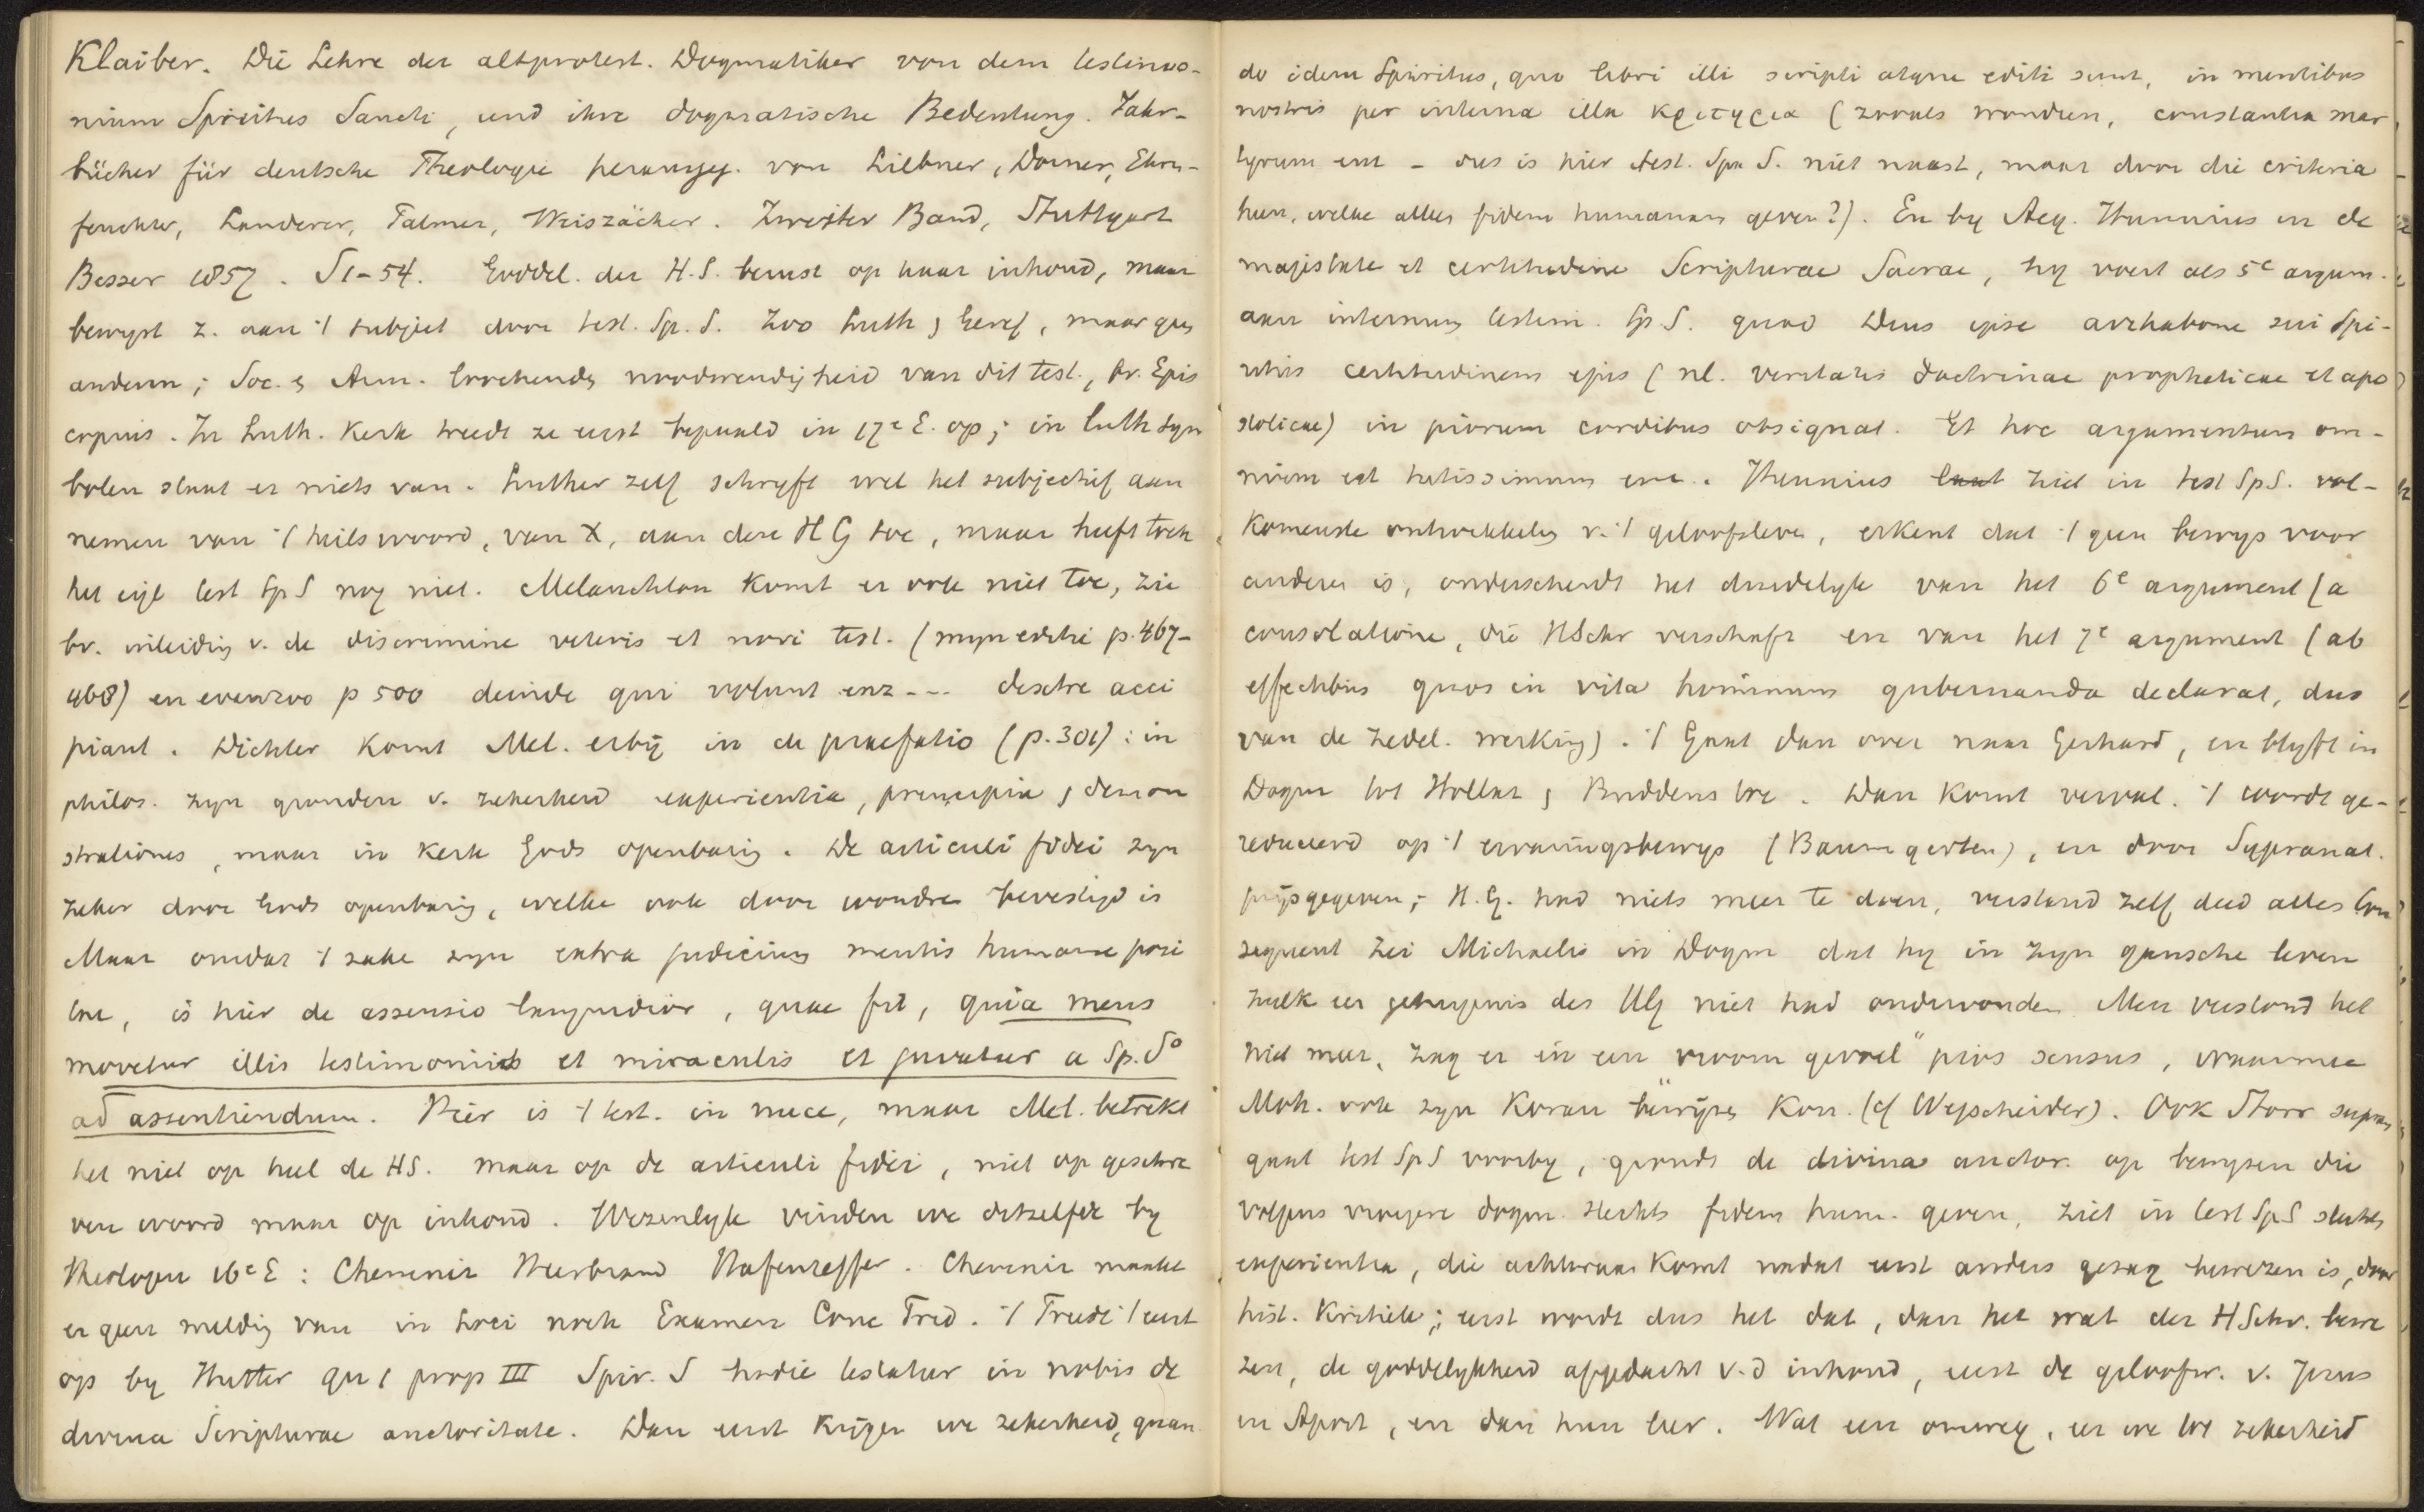 Klaiber. Die Lehre der altprotest. Dogmatiker von dem testimo-
nium Spiritus Sancti, und ihre dogmatische Bedeutung. Jahr-
bücher für deutsche Theologie herausgeg. von Liebner, Dorner, Ehren-
feuchter, Landerer, Palmer, Weiszäcker. Zweiter Band, Stuttgart
Besser 1857. S 1-54. Goddel. der H.S. berust op haar inhoud, maar
bewyst z. aan 't subject door test. Sp. S. Zoo Luth & Geref, maar
anderen; Soc. & Arm. loochends noodwendigheid van dit test., br. Epis
copius. In Luth. Kerk treedt ze eerst bepaald in 17e E. op; in Luth sym
bolen staat er niets van. Luther zelf schryft wel het subjectief aan
nemen van 't heilswoord, van X, aan den H G toe, maar heeft toch
het eigl test Sp S nog niet. Melanchton komt er ook niet toe, zie
bv. inleidig v. de discrimine veteris et novi test. (myn editie p. 467-
468) en evenzoo p 500 deinde qui volunt enz --- dextre acci
piant. Dichter komt Mel. erbij in de praefatio (p. 301): in
philos. zyn gronden v. zekerheid experientia, principia, demon
strationes, maar in Kerk Gods openbarig. De articuli fidei zyn
zeker door Gods openbarig, welke ook door wondren bevestigd is
Maar omdat 't zake zyn extra judicium mentis humanae posi
tae, is hier de assensio languidior, quae fit, quia mens
movetur illis testimoniis et miraculis et juvatur a Sp. So
ad assentiendum. Hier is 't test. in nuce, maar Mel. betrekt
het niet op heel de HS. maar op de articuli fidei, niet op geschre
ven woord maar op inhoud. Wezenlyk vinden we ditzelfde by
Theologen 16e E: Chemniz Heerbrand Hafenreffer. Chemniz maakt
er geen meldig van in Loci noch Examen Conc Trid. 't Treedt 't eerst
op by Hutter qu 1 prop III Spir. S hodie testatur in nobis de
divina Scripturae auctoritate. Dan eerst krijgen we zekerheid, quan
do idem Spiritus, quo libri illi scripti atque editi sunt, in mentibus
nostris per interna illa κριτηρια (zooals wondren, constantia mar
tyrum enz - dus is hier test. Sp S. niet naast, maar door die criteria
heen, welke alleen fidem humanam geven?). En by Aeg. Hunnius in de
majestate et certitudine Scripturae Sacrae, hy voert als 5e argum.
aan internum testim. Sp. S. quod Deus ipse arrhabone sui Spi-
ritus certitudinem ejus (nl. veritatis doctrinae propheticae et apo
stolicae) in piorum cordibus obsignat. Et hoc argumentum om-
nium est tutissimum enz. Hunnius ziet in test Sp S. vol-
komenste ontwikkelig v. 't geloofsleven, erkent dat 't geen bewys voor
anderen is, onderscheidt het duidelyk van het 6e argument (a
consolatione, die HSchr verschaft en van het 7e argument (ab
effectibus quos in vita hominum gubernanda declarat, dus
van de zedel. werking). 't Gaat dan over naar Gerhard, en blyft in
Dogm tot Hollaz & Buddeus toe. Dan komt verval. 't wordt ge-
reduceerd op 't ervaringsbewys (Baumgarten), en door Supranat.
prijsgegeven; H. G. had niets meer te doen, verstand zelf deed alles Con
sequent zei Michaelis in Dogm dat hy in zyn gansche leven
zulk een getuigenis des HG niet had ondervonden. Men verstond het
niet meer, zag er in een "vroom gevoel" pius sensus, waarmee
Moh. ook zyn Koran bewijzen kon. (cf Wegscheider). Ook Storr supran
gaat test Sp S voorby, grondt de divina auctor. op bewyzen die
volgens vroegere dogm. slechts fidem hum. geven, ziet in test Sp S slechts
experientia, die achteraan komt nadat eerst anders gezag bewezen is, door
hist. kritiek; eerst wordt dus het dat, dan het wat der HSchr. bewe
zen, de goddelykheid afgedacht v. d inhoud, eerst de geloofw. v. Jezus
en Apost, en dan hun leer. Wat een omweg, en we tot zekerheid